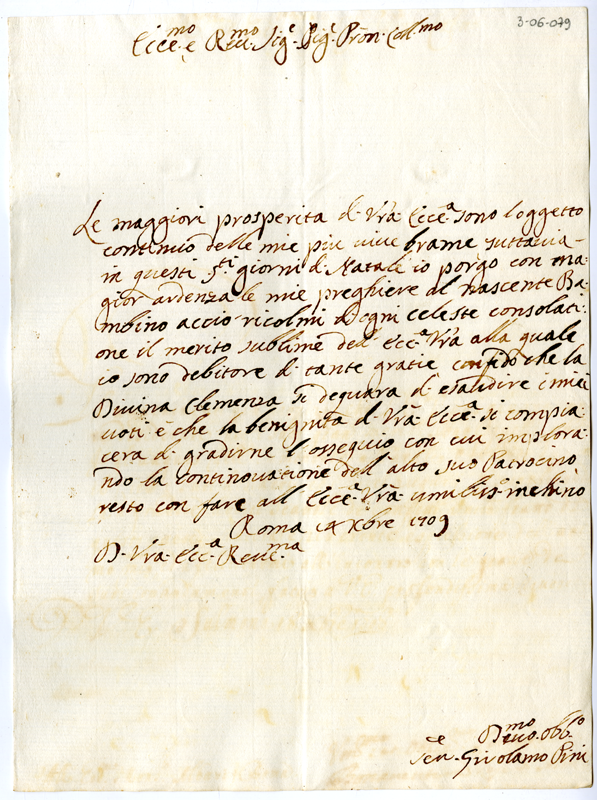 3-06-079
Ecc.mo e Rev.mo Sig.e Sig.e Pron Coll.mo
Le maggiori prosperita d. Vra Ecc.a sono l oggetto
continuo delle mie piu vive brame tuttavia
in questi S.ti giorni d. Natale io porgo con ma
gior ardenza le mie preghiere al nascente Ba
mbino accio ricolmi d ogni celeste consolati
one il merito sublime dell Ecc.a Vra alla quale
io sono debitore d. tante gratie confido che la
Divina Clemenza si degnara d. esaudire i miei
voti e che la benignita d. Vra Ecc.a si compia
cera d. gradirne l ossequio con cui implora
ndo la continovatione dell alto suo Patrocinio
resto con fare all Ecc.a Vra umiliss.o inchino
Roma 14 Xbre 1709
D. Vra Ecc.a Rev.ma
D.mo Obb.o
Ser.e Girolamo Pini